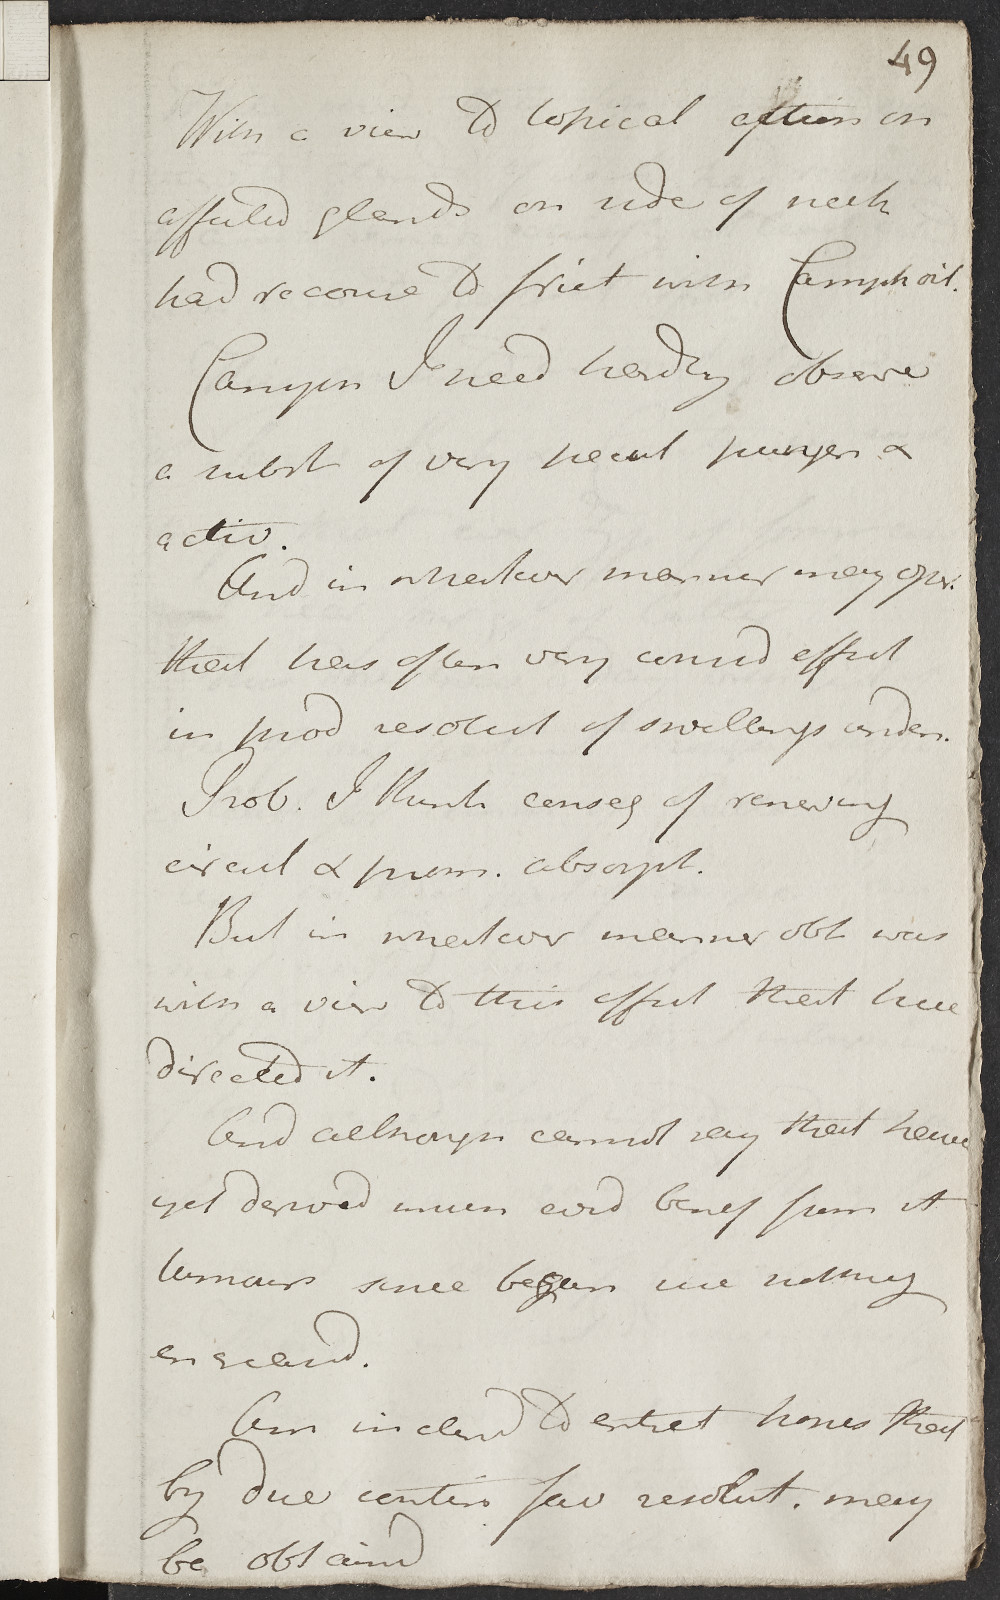 49
With a view to topical action on
affected glands on side of neck
had recourse to frict with Camph oil.
Camph I need hardly observe
a subst of very pecul pungen &
activ.
And in whatever manner may oper.
that has often very consid effect
in prod resolut of swellings inden.
Prob. I think conseq of renewing
circul & prom. absorpt.
But in whatever manner obt was
with a view to this effect that have
directed it.
And although cannot say that have
yet derived much evid benef from it
tumours since began use nothing
encreasd.
Am inclend to entret hopes that
by due contin fav resolut. may
be obtaind